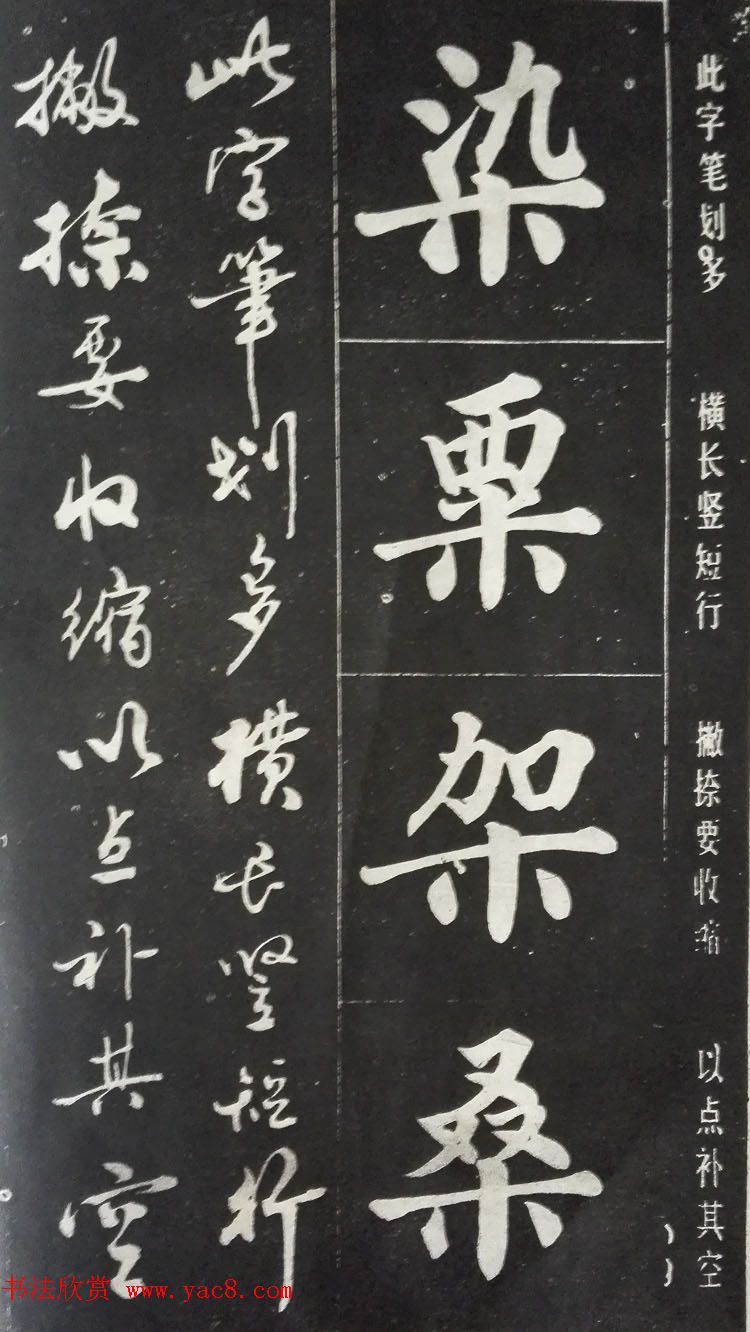 此字笔划多 横长竖短行 撇捺要收缩 以点补其空
染栗架桑
此字筆划多横长竖短行
撇捺要收缩以点补其空
书法欣赏 www.yac8.com